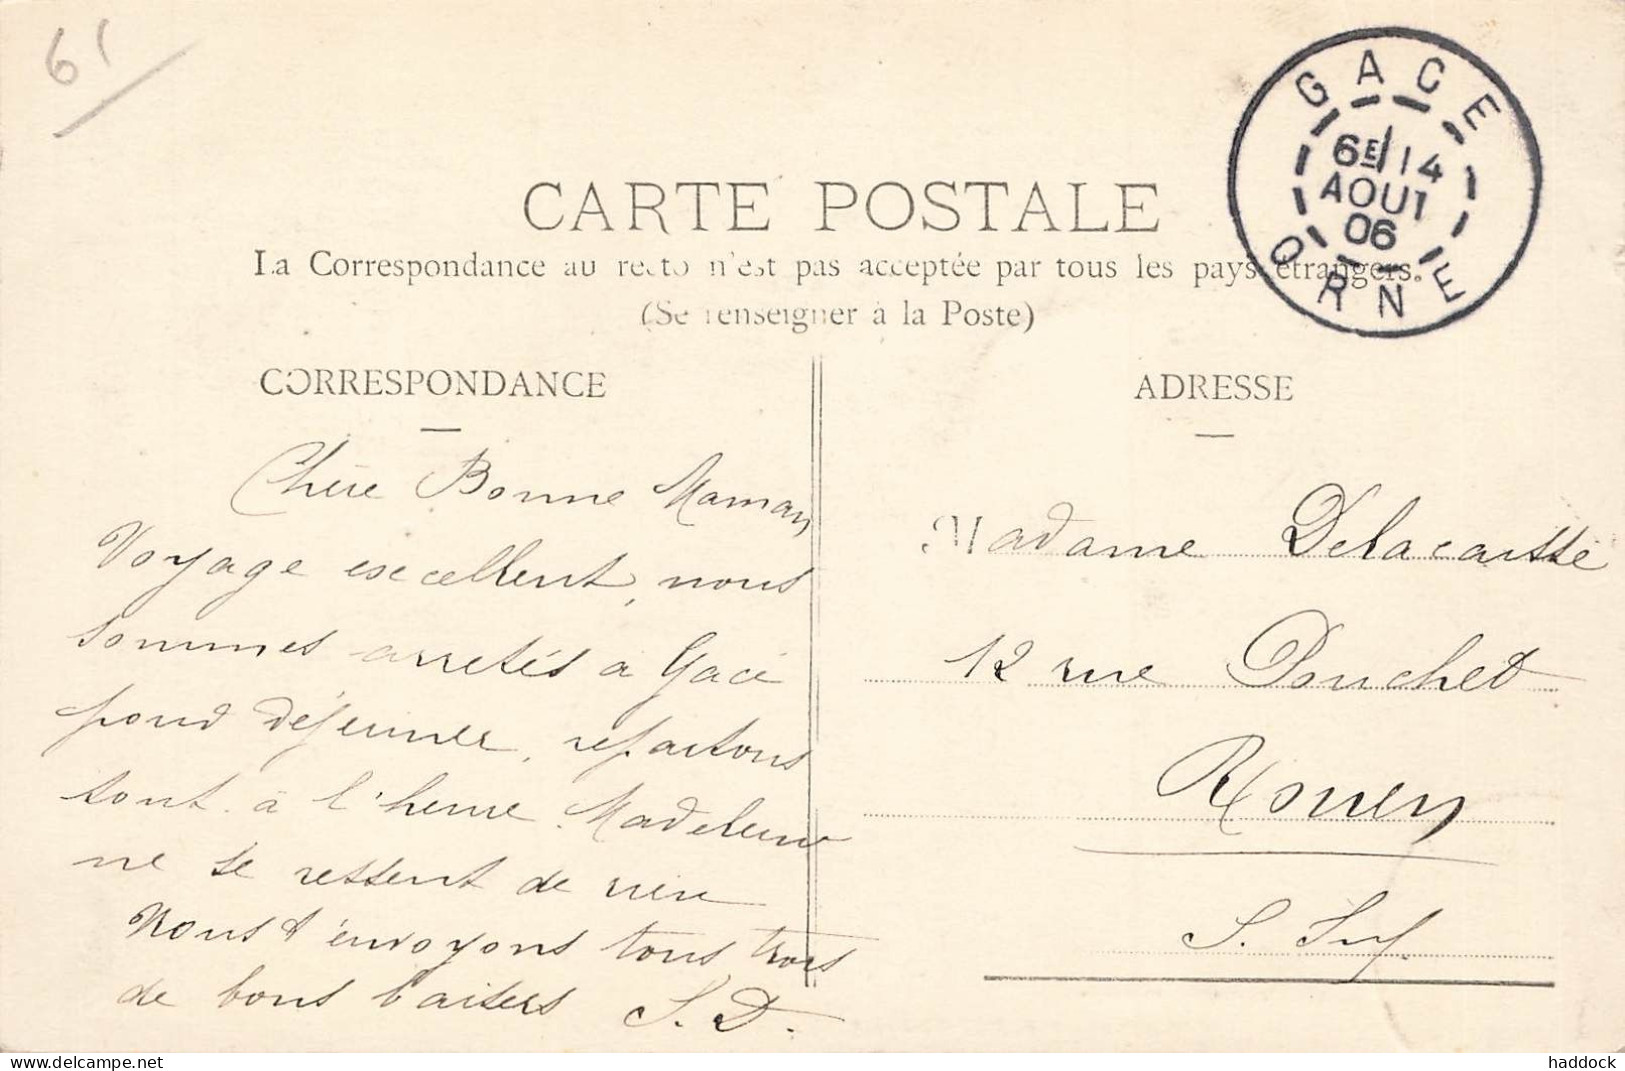 61
GACE
6E/14
AOUT
06
ORNE
CARTE POSTALE
La Correspondance au recto n'est pas acceptée par tous les pays étrangers.
(Se renseigner à la Poste)
CORRESPONDANCE
ADRESSE
Chère Bonne Maman
Voyage excellent, nous
sommes arretés à Gacé
pour déjeuner, repartons
tout à l'heure. Madeleine
ne se ressent de rien
Nous t'envoyons tous trois
de bons baisers S. D.
Madame Delacaisse
12 rue Pouchet
Rouen
S. Inf.
delcampe.net
haddock